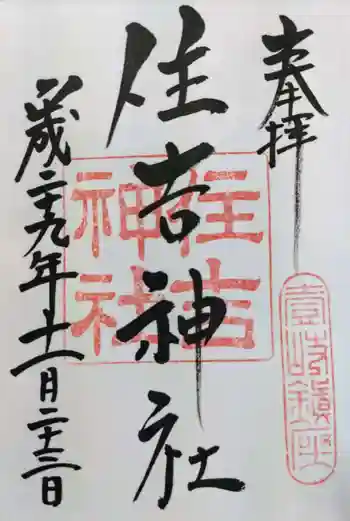 奉拝
住吉神社
平成二十九年十一月二十三日
住吉
神社
壹岐鎮座